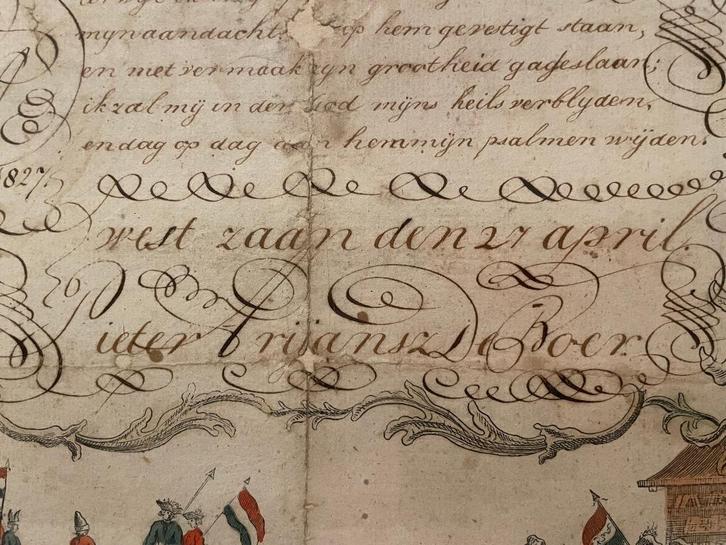 mijn aandacht op hem gevestigt staan,
en met vermaak zyn grootheid gageslaan;
ik zal mij in den God mijns heils verblyden,
en dag op dag aan hem mijn psalmen wijden.
1827.
west zaan den 27 april.
Pieter Arijansz De Boer.